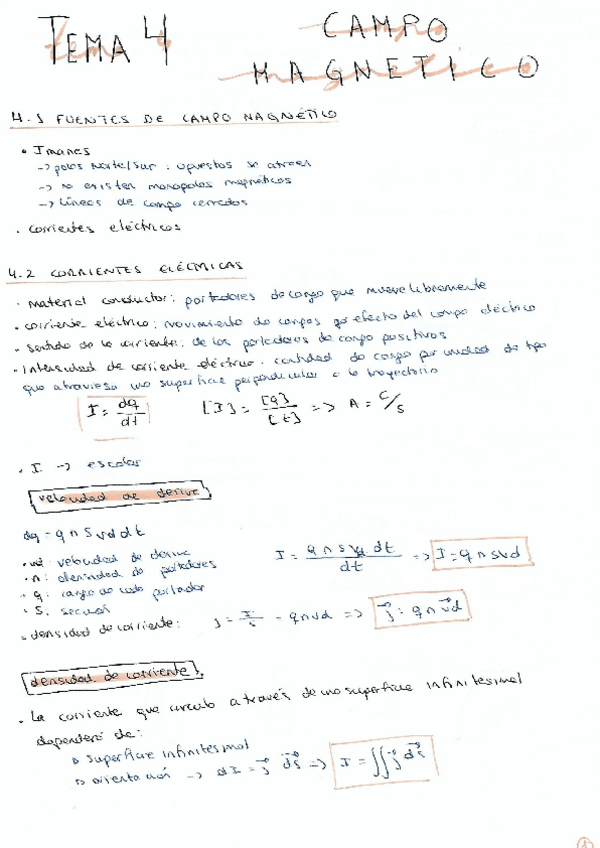 TEMA 4 CAMPO
MAGNETICO
4.1 FUENTES DE CAMPO MAGNÉTICO
• Imanes
-> polos Norte/Sur : opuestos se atraen
-> no existen monopolos magnéticos
-> líneas de campo cerradas
. corrientes eléctricas
4.2 CORRIENTES ELÉCTRICAS
· material conductor: portadores de carga que mueve libremente
• corriente eléctrica: movimiento de cargas por efecto del campo eléctrico
• sentido de la corriente: de los portadores de carga positivos
• Intensidad de corriente eléctrica: cantidad de carga por unidad de tpo
que atraviesa una superficie perpendicular a la trayectoria
I = dq/dt [I] = [q]/[t] => A = C/s
. I -> escalar
velocidad de deriva
dq = q n S vd dt
• vd: velocidad de deriva
• n: densidad de portadores
• q: carga de cada portador
• S: sección
I = q n S vd dt / dt => I = q n S vd
• densidad de corriente: j = I/S = q n vd => j = q n vd
densidad de corriente
• La corriente que circula a través de una superficie infinitesimal
dependerá de:
superficie infinitesimal
orientación -> dI = j dS => I = ∬ j dS